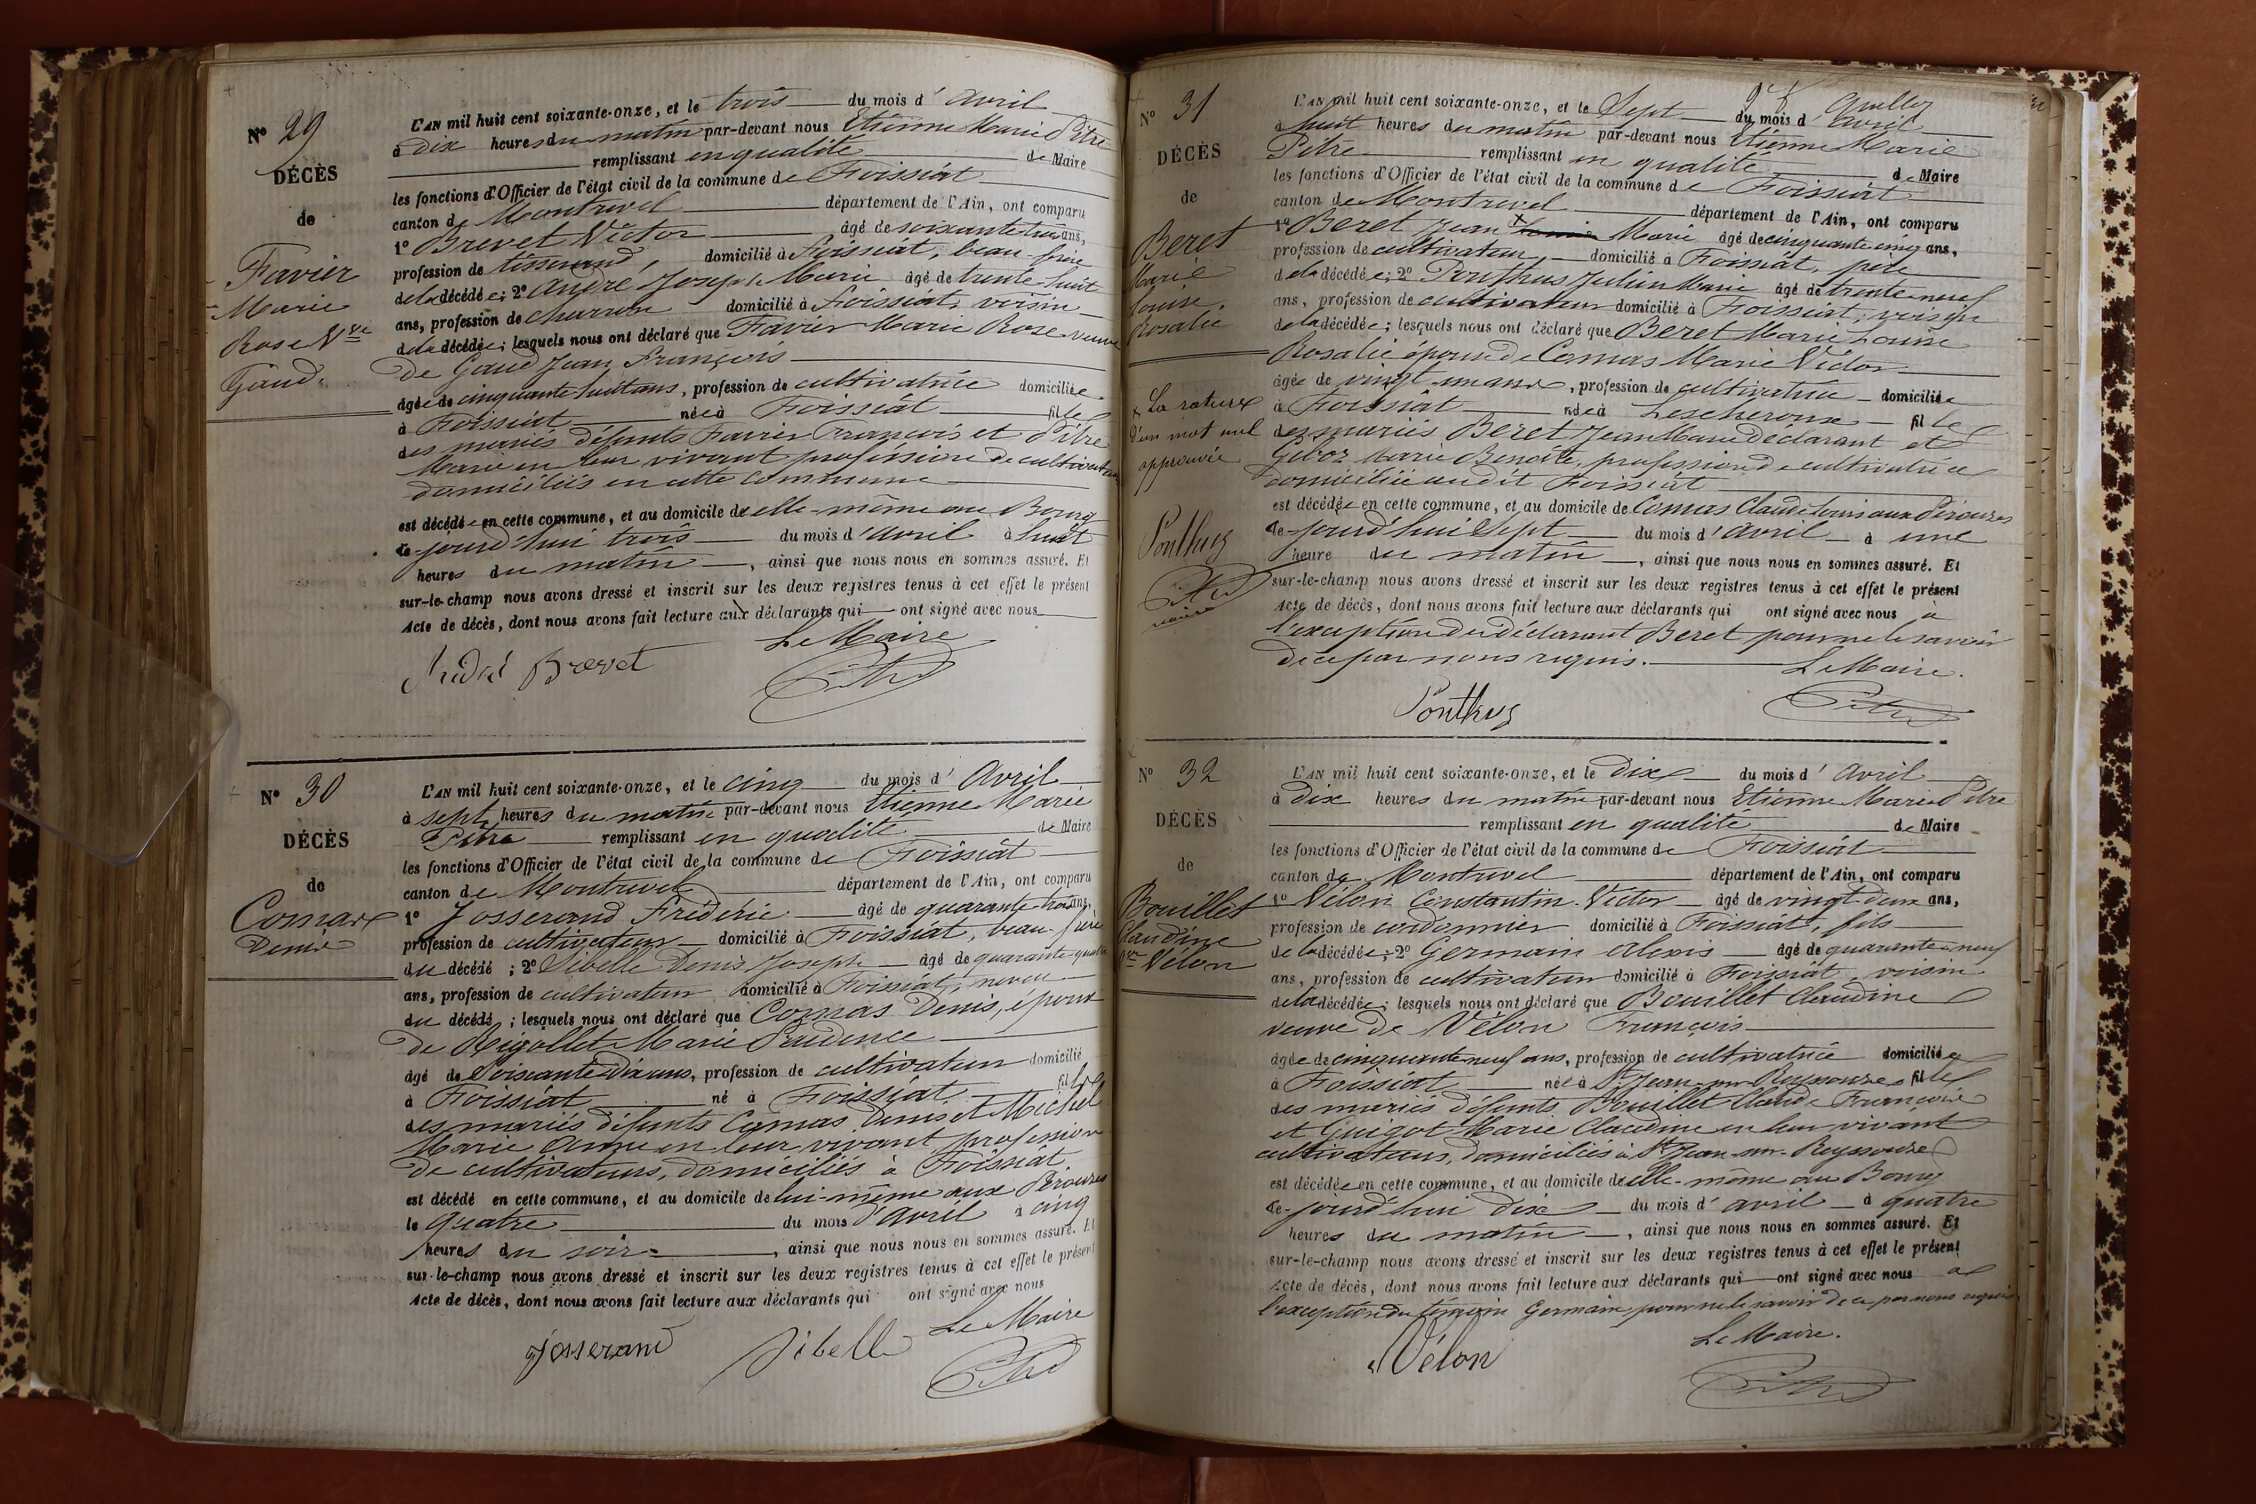 N° 29
DÉCÈS
de
Favier
Marie
Rose Vve
Gaud.
L'AN mil huit cent soixante-onze, et le trois du mois d'avril
à dix heures du matin par-devant nous Etienne Marie Pitre
remplissant en qualité de Maire
les fonctions d'Officier de l'état civil de la commune de Foissiat
canton de Montrevel département de l'Ain, ont comparu
1° Brevet Victor âgé de soixante trois ans,
profession de tisserand, domicilié à Foissiat, beau-frère
de la décédée; 2° André Joseph Marie âgé de trente huit
ans, profession de charron domicilié à Foissiat, voisin
de la décédée; lesquels nous ont déclaré que Favier Marie Rose veuve
de Gaud Jean François
âgée de cinquante huit ans, profession de cultivatrice domiciliée
à Foissiat née à Foissiat fille
des mariés défunts Favier François et Pitre
Marie en leur vivant profession de cultivateurs
domiciliés en cette commune
est décédée en cette commune, et au domicile de elle-même au Bourg
ce-jourd'hui trois du mois d'avril à huit
heures du matin, ainsi que nous nous en sommes assuré. Et
sur-le-champ nous avons dressé et inscrit sur les deux registres tenus à cet effet le présent
Acte de décès, dont nous avons fait lecture aux déclarants qui ont signé avec nous
Le Maire
André Brevet Pitre
N° 30
DÉCÈS
de
Comas
Denis
L'AN mil huit cent soixante-onze, et le cinq du mois d'Avril
à sept heures du matin par-devant nous Etienne Marie
Pitre remplissant en qualité de Maire
les fonctions d'Officier de l'état civil de la commune de Foissiat
canton de Montrevel département de l'Ain, ont comparu
1° Josserand Frédéric âgé de quarante trois ans,
profession de cultivateur domicilié à Foissiat, beau-frère
du décédé; 2° Sibelle Denis Joseph âgé de quarante-quatre
ans, profession de cultivateur domicilié à Foissiat, neveu
du décédé; lesquels nous ont déclaré que Comas Denis, époux
de Rigollet Marie Prudence
âgé de Soixante Dix ans, profession de cultivateur domicilié
à Foissiat né à Foissiat fils
des mariés défunts Comas Denis et Michel
Marie Anne en leur vivant profession
de cultivateurs, domiciliés à Foissiat
est décédé en cette commune, et au domicile de lui-même aux Pérouses
le quatre du mois d'avril à cinq
heures du soir, ainsi que nous nous en sommes assuré. Et
sur-le-champ nous avons dressé et inscrit sur les deux registres tenus à cet effet le présent
Acte de décès, dont nous avons fait lecture aux déclarants qui ont signé avec nous
Le Maire
Josserand Sibelle Pitre
N° 31
DÉCÈS
de
Beret
Marie
Louise
Rosalie
x La rature
d'un mot nul
approuvée
Ponthus
Pitre
maire
L'AN mil huit cent soixante-onze, et le Sept du mois d'avril
à huit heures du matin par-devant nous Etienne Marie
Pitre remplissant en qualité de Maire
les fonctions d'Officier de l'état civil de la commune de Foissiat
canton de Montrevel département de l'Ain, ont comparu
1° Beret Jean x Marie âgé de cinquante cinq ans,
profession de cultivateur domicilié à Foissiat, père
de la décédée; 2° Ponthus Julien Marie âgé de trente-neuf
ans, profession de cultivateur domicilié à Foissiat, voisin
de la décédée; lesquels nous ont déclaré que Beret Marie Louise
Rosalie épouse de Comas Marie Victor
âgée de vingt un ans, profession de cultivatrice domiciliée
à Foissiat née à Lescheroux fille
des mariés Beret Jean Marie Déclarant et
Marie Benoîte, profession de cultivatrice
domiciliée audit Foissiat
est décédée en cette commune, et au domicile de Comas Claude Louis aux Pérouses
ce-jourd'hui Sept du mois d'avril à une
heure du matin, ainsi que nous nous en sommes assuré. Et
sur-le-champ nous avons dressé et inscrit sur les deux registres tenus à cet effet le présent
Acte de décès, dont nous avons fait lecture aux déclarants qui ont signé avec nous à
l'exception du déclarant Beret pour ne le savoir
de ce par nous requis.
Le Maire.
Ponthus Pitre
N° 32
DÉCÈS
de
Bouillet
Claudine
Vve Vélon
L'AN mil huit cent soixante-onze, et le Dix du mois d'avril
à Dix heures du matin par-devant nous Etienne Marie Pitre
remplissant en qualité de Maire
les fonctions d'Officier de l'état civil de la commune de Foissiat
canton de Montrevel département de l'Ain, ont comparu
1° Vélon Constantin Victor âgé de vingt deux ans,
profession de cordonnier domicilié à Foissiat, fils
de la décédée; 2° Germain Alexis âgé de quarante-neuf
ans, profession de cultivateur domicilié à Foissiat, voisin
de la décédée; lesquels nous ont déclaré que Bouillet Claudine
veuve de Vélon François
âgée de cinquante neuf ans, profession de cultivatrice domiciliée
à Foissiat née à St Jean-sur-Reyssouze fille
des mariés défunts Bouillet Claude François
et Guigot Marie Claudine en leur vivant
cultivateurs, domiciliés à St Jean-sur-Reyssouze
est décédée en cette commune, et au domicile de elle-même au Bourg
ce-jourd'hui dix du mois d'avril à quatre
heures du matin, ainsi que nous nous en sommes assuré. Et
sur-le-champ nous avons dressé et inscrit sur les deux registres tenus à cet effet le présent
Acte de décès, dont nous avons fait lecture aux déclarants qui ont signé avec nous à
l'exception du témoin Germain pour ne le savoir de ce par nous requis
Le Maire.
Vélon Pitre